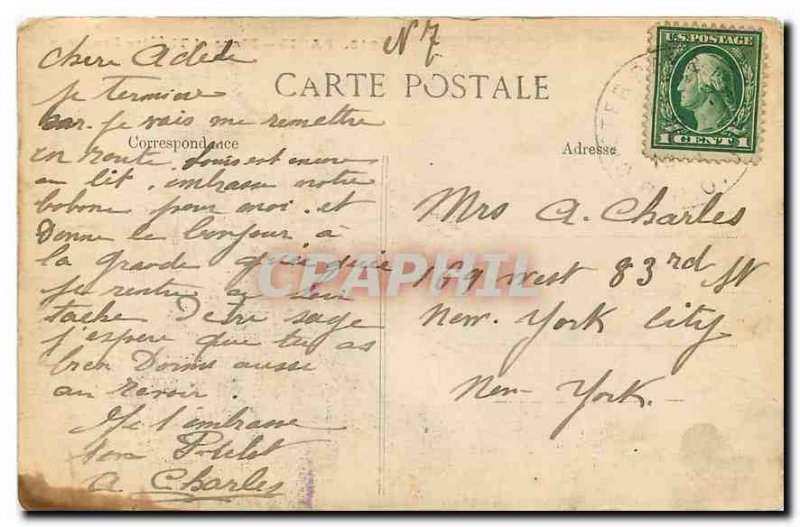 N 7
U.S. POSTAGE
1 CENT 1
CARTE POSTALE
Correspondance
Adresse
chere Adele
je termine
car je vais me remettre
en route. Louis est encore
au lit. embrasse notre
bobone pour moi. et
Donne le bonjour à
la grande
je rentre ce soir
tache D'etre sage
j'espere que tu as
bien Dormi aussi
au revoir
Je t'embrasse
ton
A Charles
Mrs A. Charles
169 West 83rd St
New-York City
New-York.
CPAPHIL